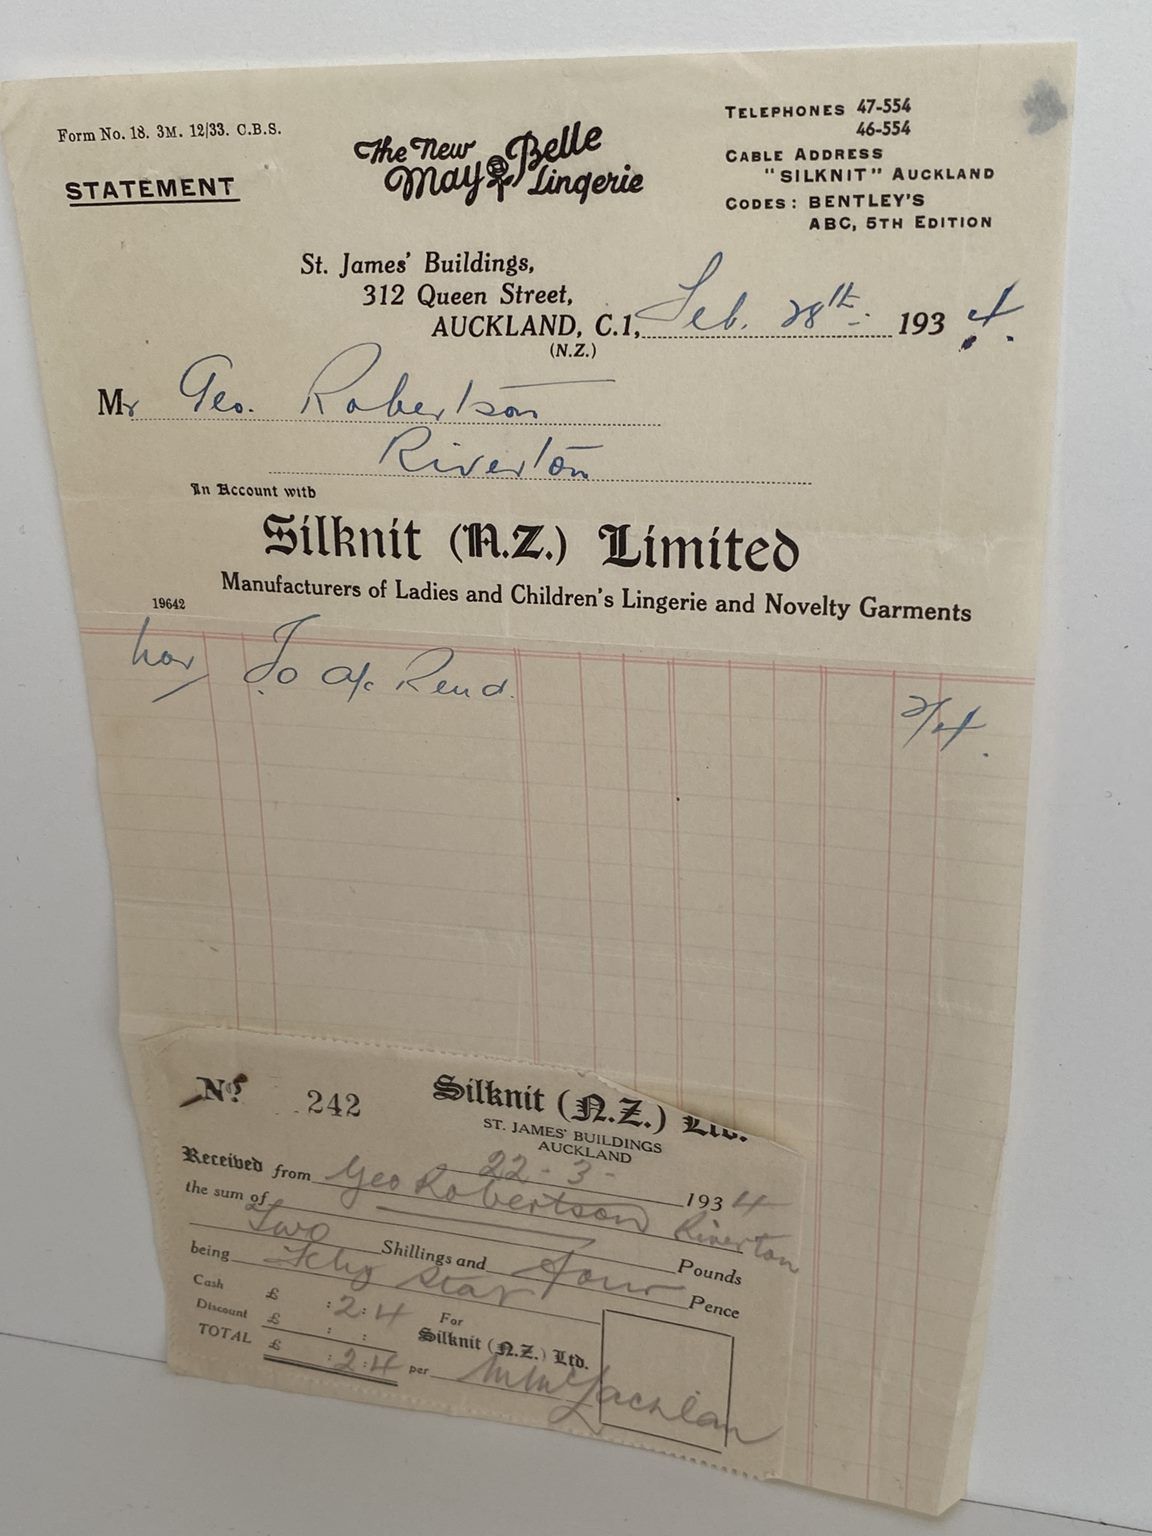 Form No. 18. 3M. 12/33. C.B.S.
STATEMENT
The New
May Belle
Lingerie
TELEPHONES 47-554
46-554
CABLE ADDRESS
"SILKNIT" AUCKLAND
CODES: BENTLEY'S
ABC, 5TH EDITION
St. James' Buildings,
312 Queen Street,
AUCKLAND, C.1, Feb. 28th 1934.
(N.Z.)
Mr Geo. Robertson
Riverton
In Account with
Silknit (N.Z.) Limited
Manufacturers of Ladies and Children's Lingerie and Novelty Garments
19642
Nov To a/c Rend. 2/4.
No. 242
Silknit (N.Z.) Ltd.
ST. JAMES' BUILDINGS
AUCKLAND
22-3- 1934
Received from Geo Robertson Riverton
the sum of Pounds
Two Shillings and Four Pence
being
Cash £ : 2 : 4
Discount £ : :
TOTAL £ : 2 : 4
For
Silknit (N.Z.) Ltd.
per M McLachlan